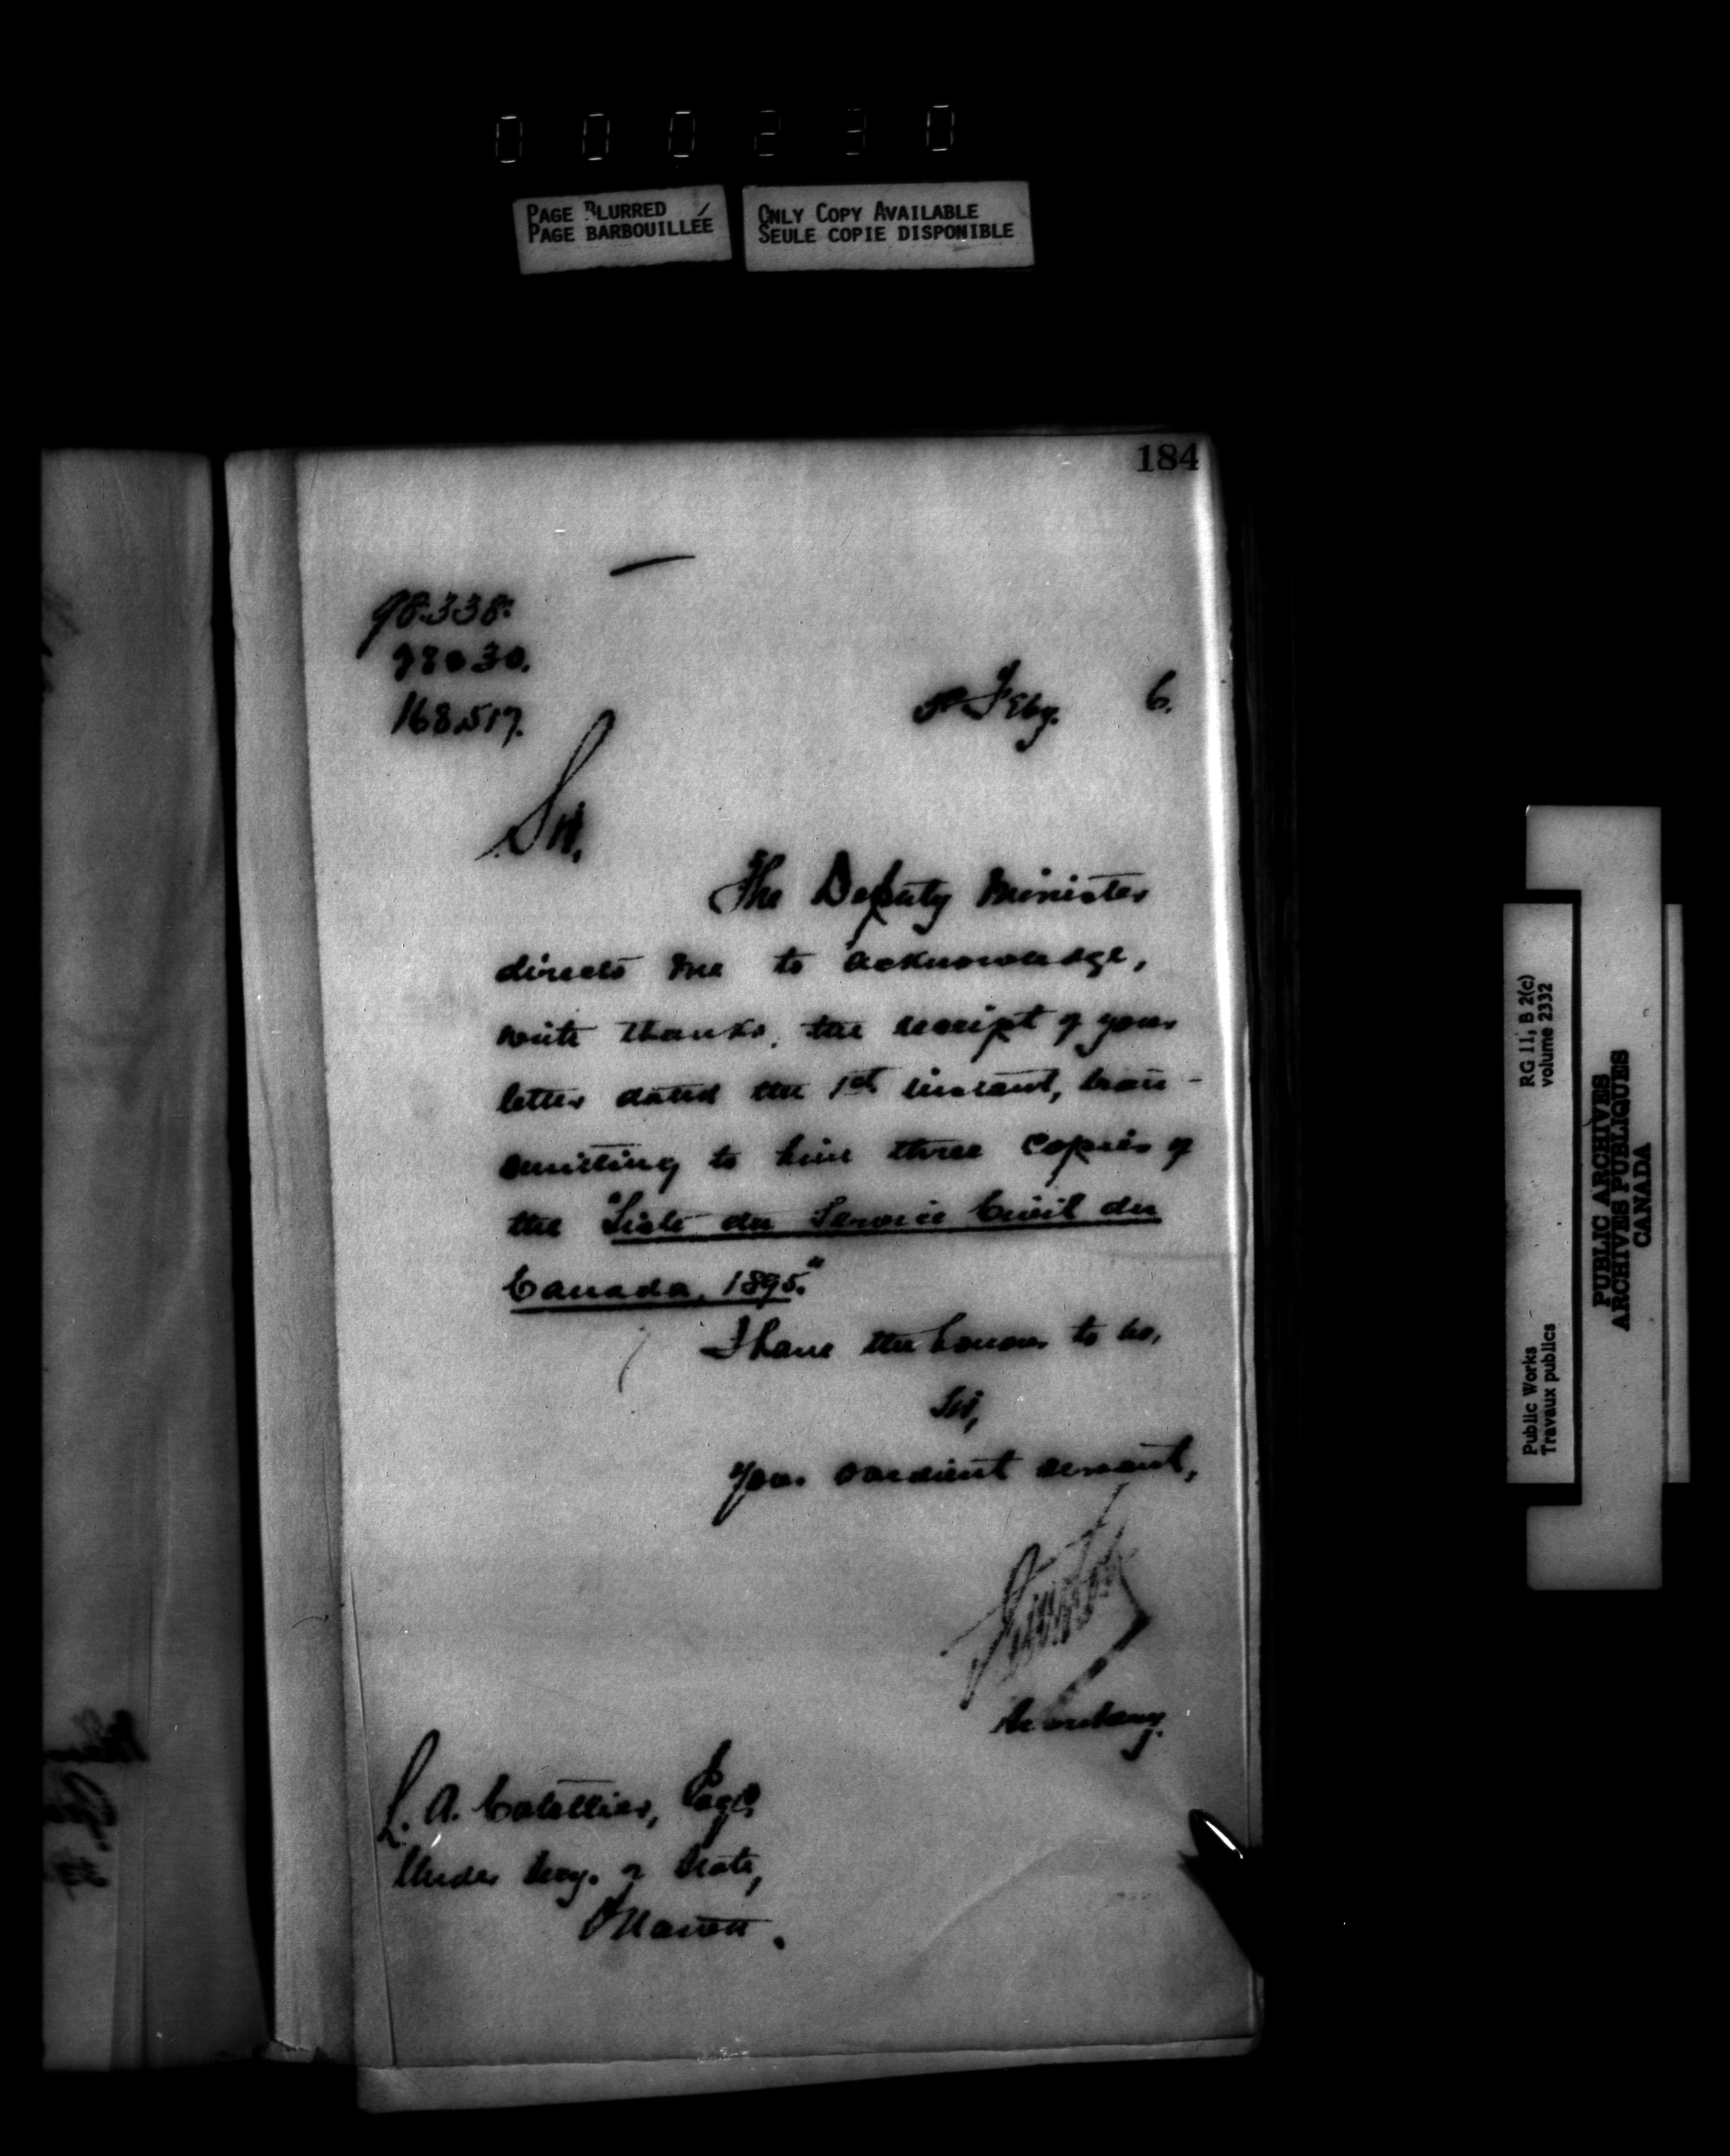 000230
PAGE BLURRED
PAGE BARBOUILLÉE
ONLY COPY AVAILABLE
SEULE COPIE DISPONIBLE
184
98.338.
98030.
168517.
5th Feby. 6.
Sir,
The Deputy Minister
directs me to acknowledge,
with thanks, the receipt of your
letter dated the 1st instant, trans-
mitting to him three copies of
the "Liste du Service Civil du
Canada, 1895."
I have the honour to be,
Sir,
Your obedient servant,
Secretary.
L. A. Catellier, Esqr.
Under Secy. of State,
Ottawa.
Public Works
Travaux publics
RG 11, B 2(c)
volume 2332
PUBLIC ARCHIVES
ARCHIVES PUBLIQUES
CANADA